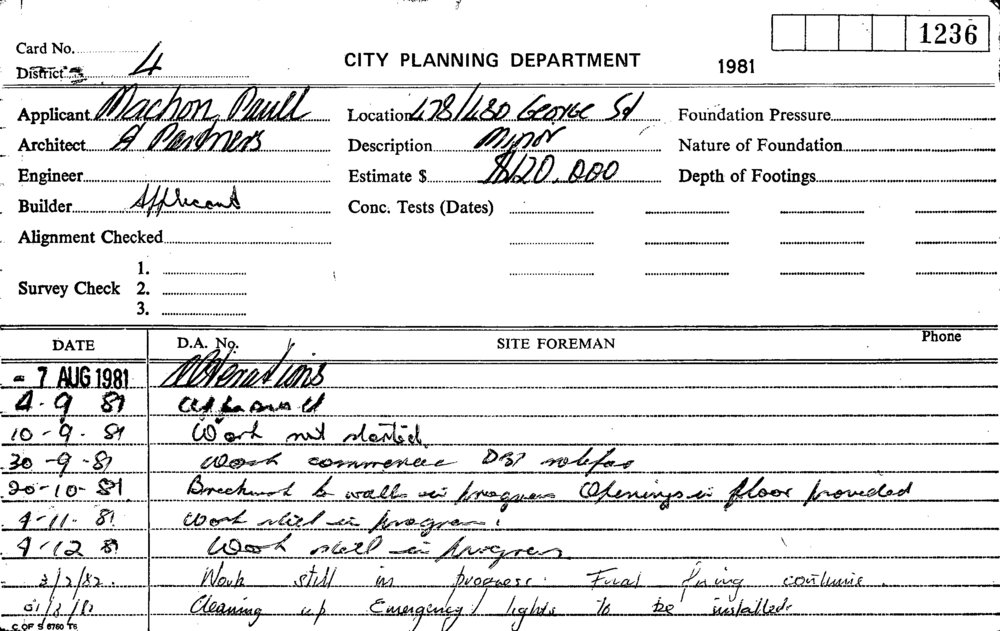 1236
Card No.
District 4
CITY PLANNING DEPARTMENT 1981
Applicant Machon, Paull Location 478/480 George St Foundation Pressure
Architect & Partners Description Minor Nature of Foundation
Engineer Estimate $ $120.000 Depth of Footings
Builder Applicant Conc. Tests (Dates)
Alignment Checked
1.
Survey Check 2.
3.
DATE D.A. No. SITE FOREMAN Phone
- 7 AUG 1981 Alterations
4.9 81
10-9.81 Work not started.
30-9-81 Work commence
20-10-81 Brickwork to walls in progress Openings in floor provided
4-11.81 Work still in progress.
4-12 81 Work still in progress
3/2/82. Work still in progress. Final fixing continue.
Cleaning up Emergency lights to be installed.
C OF S 6760 T6